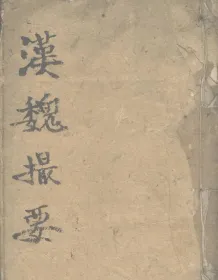 漢魏撮要